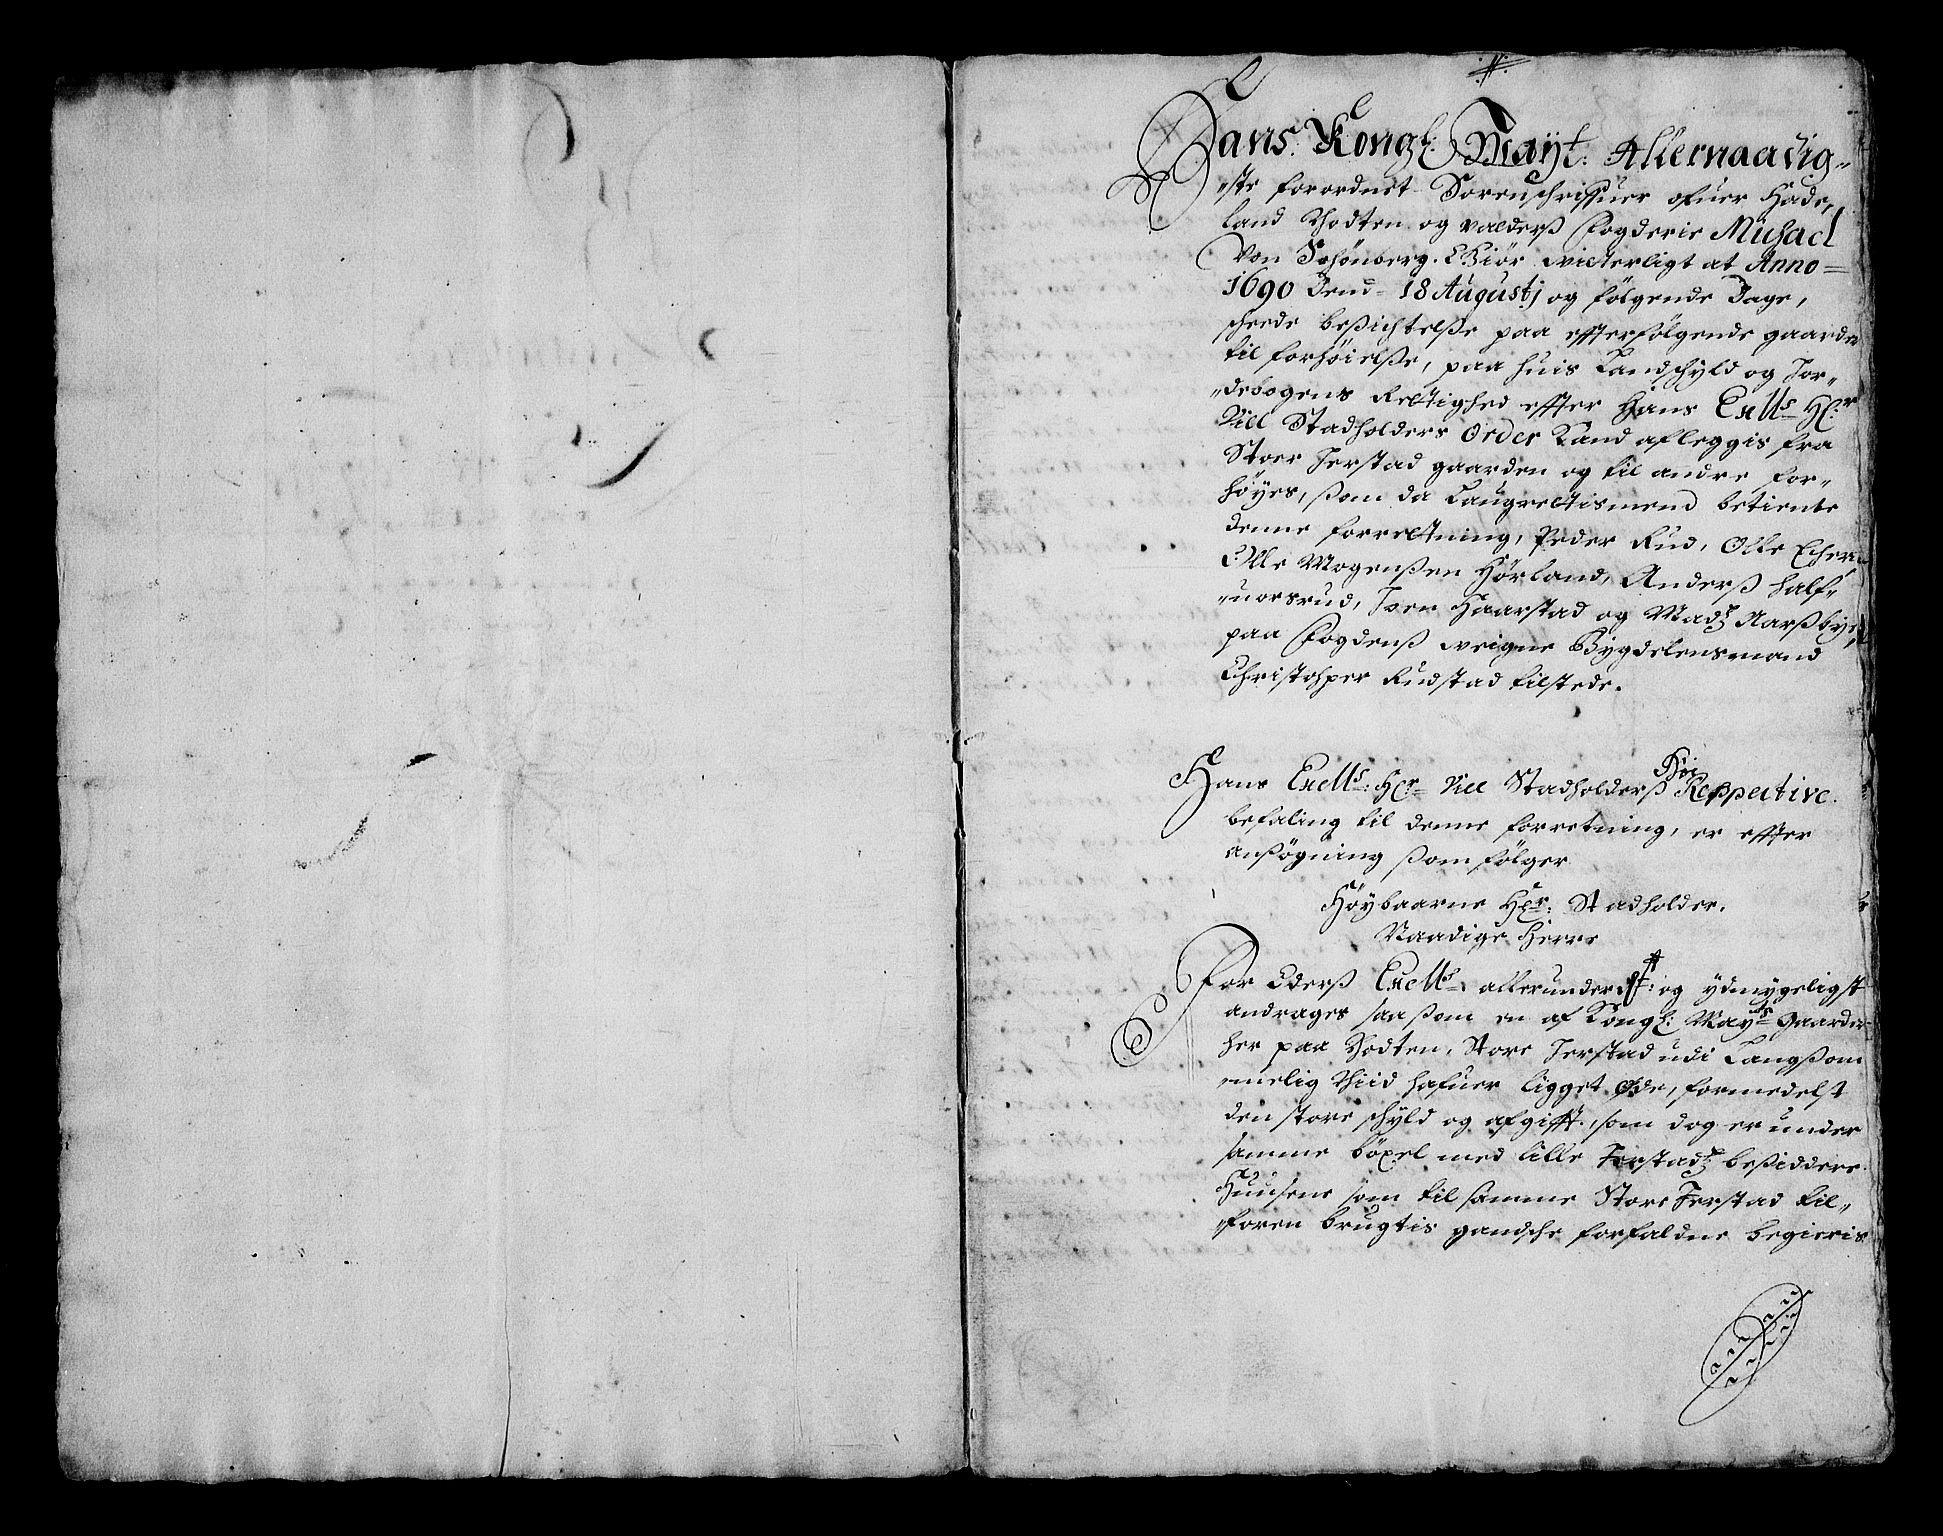 Hans Kongl: Mayt: Allernaadig-
ste forordnet Sorenschrifuer ofuer Hade-
land Thodten og valderß fogderie Michael
Von Schönberg. Giör witterligt at Anno
1690 Dend 18 Augustj og følgende Dage,
scheede beßichtelße paa effterfølgende gaarder
til forhøielße, paa huis Landschyld og Jor-
debogens Rettighed effter Hans Exells Hr
Vice Stadholders Order Kand afleggis fra
Stoer Jerstad gaarden og til andre for-
høyes, ßom da Laugrettismend betiente
denne forrettning, Peder Rud, Olle
Olle Mogenßen Hørland, Anderß Half-
uorsrud, Iver Haarstad og Madz Narßbye,
paa fogdenß weigne Bygdelensmand
Christopher Rudstad tilstede.
Høi
Hans Exells: Hr Vice Stadholderß Reßpective
befaling til denne forretning, er effter
anßøgning ßom følger
Høybaarne Hr: Stadholder.
Naadige Herre
For Ederß Exells allerunderdst: og ydmygeligst
andrages saa ßom en af Kongl: Mayts Gaarder
her paa Thodten, Store Jerstad udi Langßom
melig Thiid hafuer ligget øde, formedelst
den store schyld og afgifft, som dog er under
samme böxel med lille Jerstadz beßiddere
Huusene som til samme Store Jerstad til-
foren brugtis gandsche forfaldne begieris